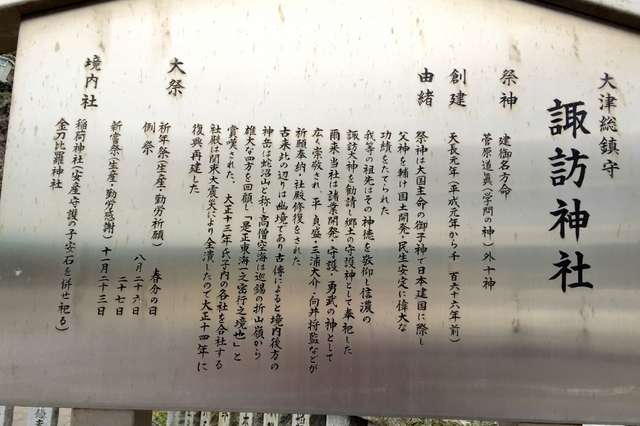 大津総鎮守
諏訪神社
祭神 建御名方命
菅原道眞(学問の神)外十神
創建 天長元年(平成元年から千百六十六年前)
由緒 祭神は大国主命の御子神で日本建国に際し
父神を輔け国土開発・民生安定に偉大な
功績をたてられた
我等の祖先はその神徳を敬仰し信濃の
諏訪大神を勧請し郷土の守護神として奉祀した
爾来当社は諸業開発・守護・勇武の神として
広く崇敬され、平貞盛・三浦大介・向井将監などが
祈願奉納・社殿修復をされた
古来此の辺りは幽境であり古傳によると境内後方の
神岳は蛇沼山と称し高僧空海は巡錫の折山嶺から
雄大な四方を回顧し「是正東海一之宮行之境也」と
賞嘆された、大正十三年氏子内の各社を合社する
社殿は関東大震災により全潰したので大正十四年に
復興再建した
大祭 祈年祭(生産・勤労祈願) 春分の日
例祭 八月二十六日
二十七日
新嘗祭(生産・勤労感謝)十一月二十三日
境内社 稲荷神社(安産守護の子安石を併せ祀る)
金刀比羅神社